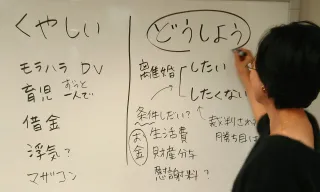 くやしい
モラハラ DV
育児 ずっと一人で
借金
浮気?
マザコン
どうしよう
離婚 したい
したくない
条件しだい?
お金
生活費
財産分与
慰謝料?
裁判され
勝ち目は